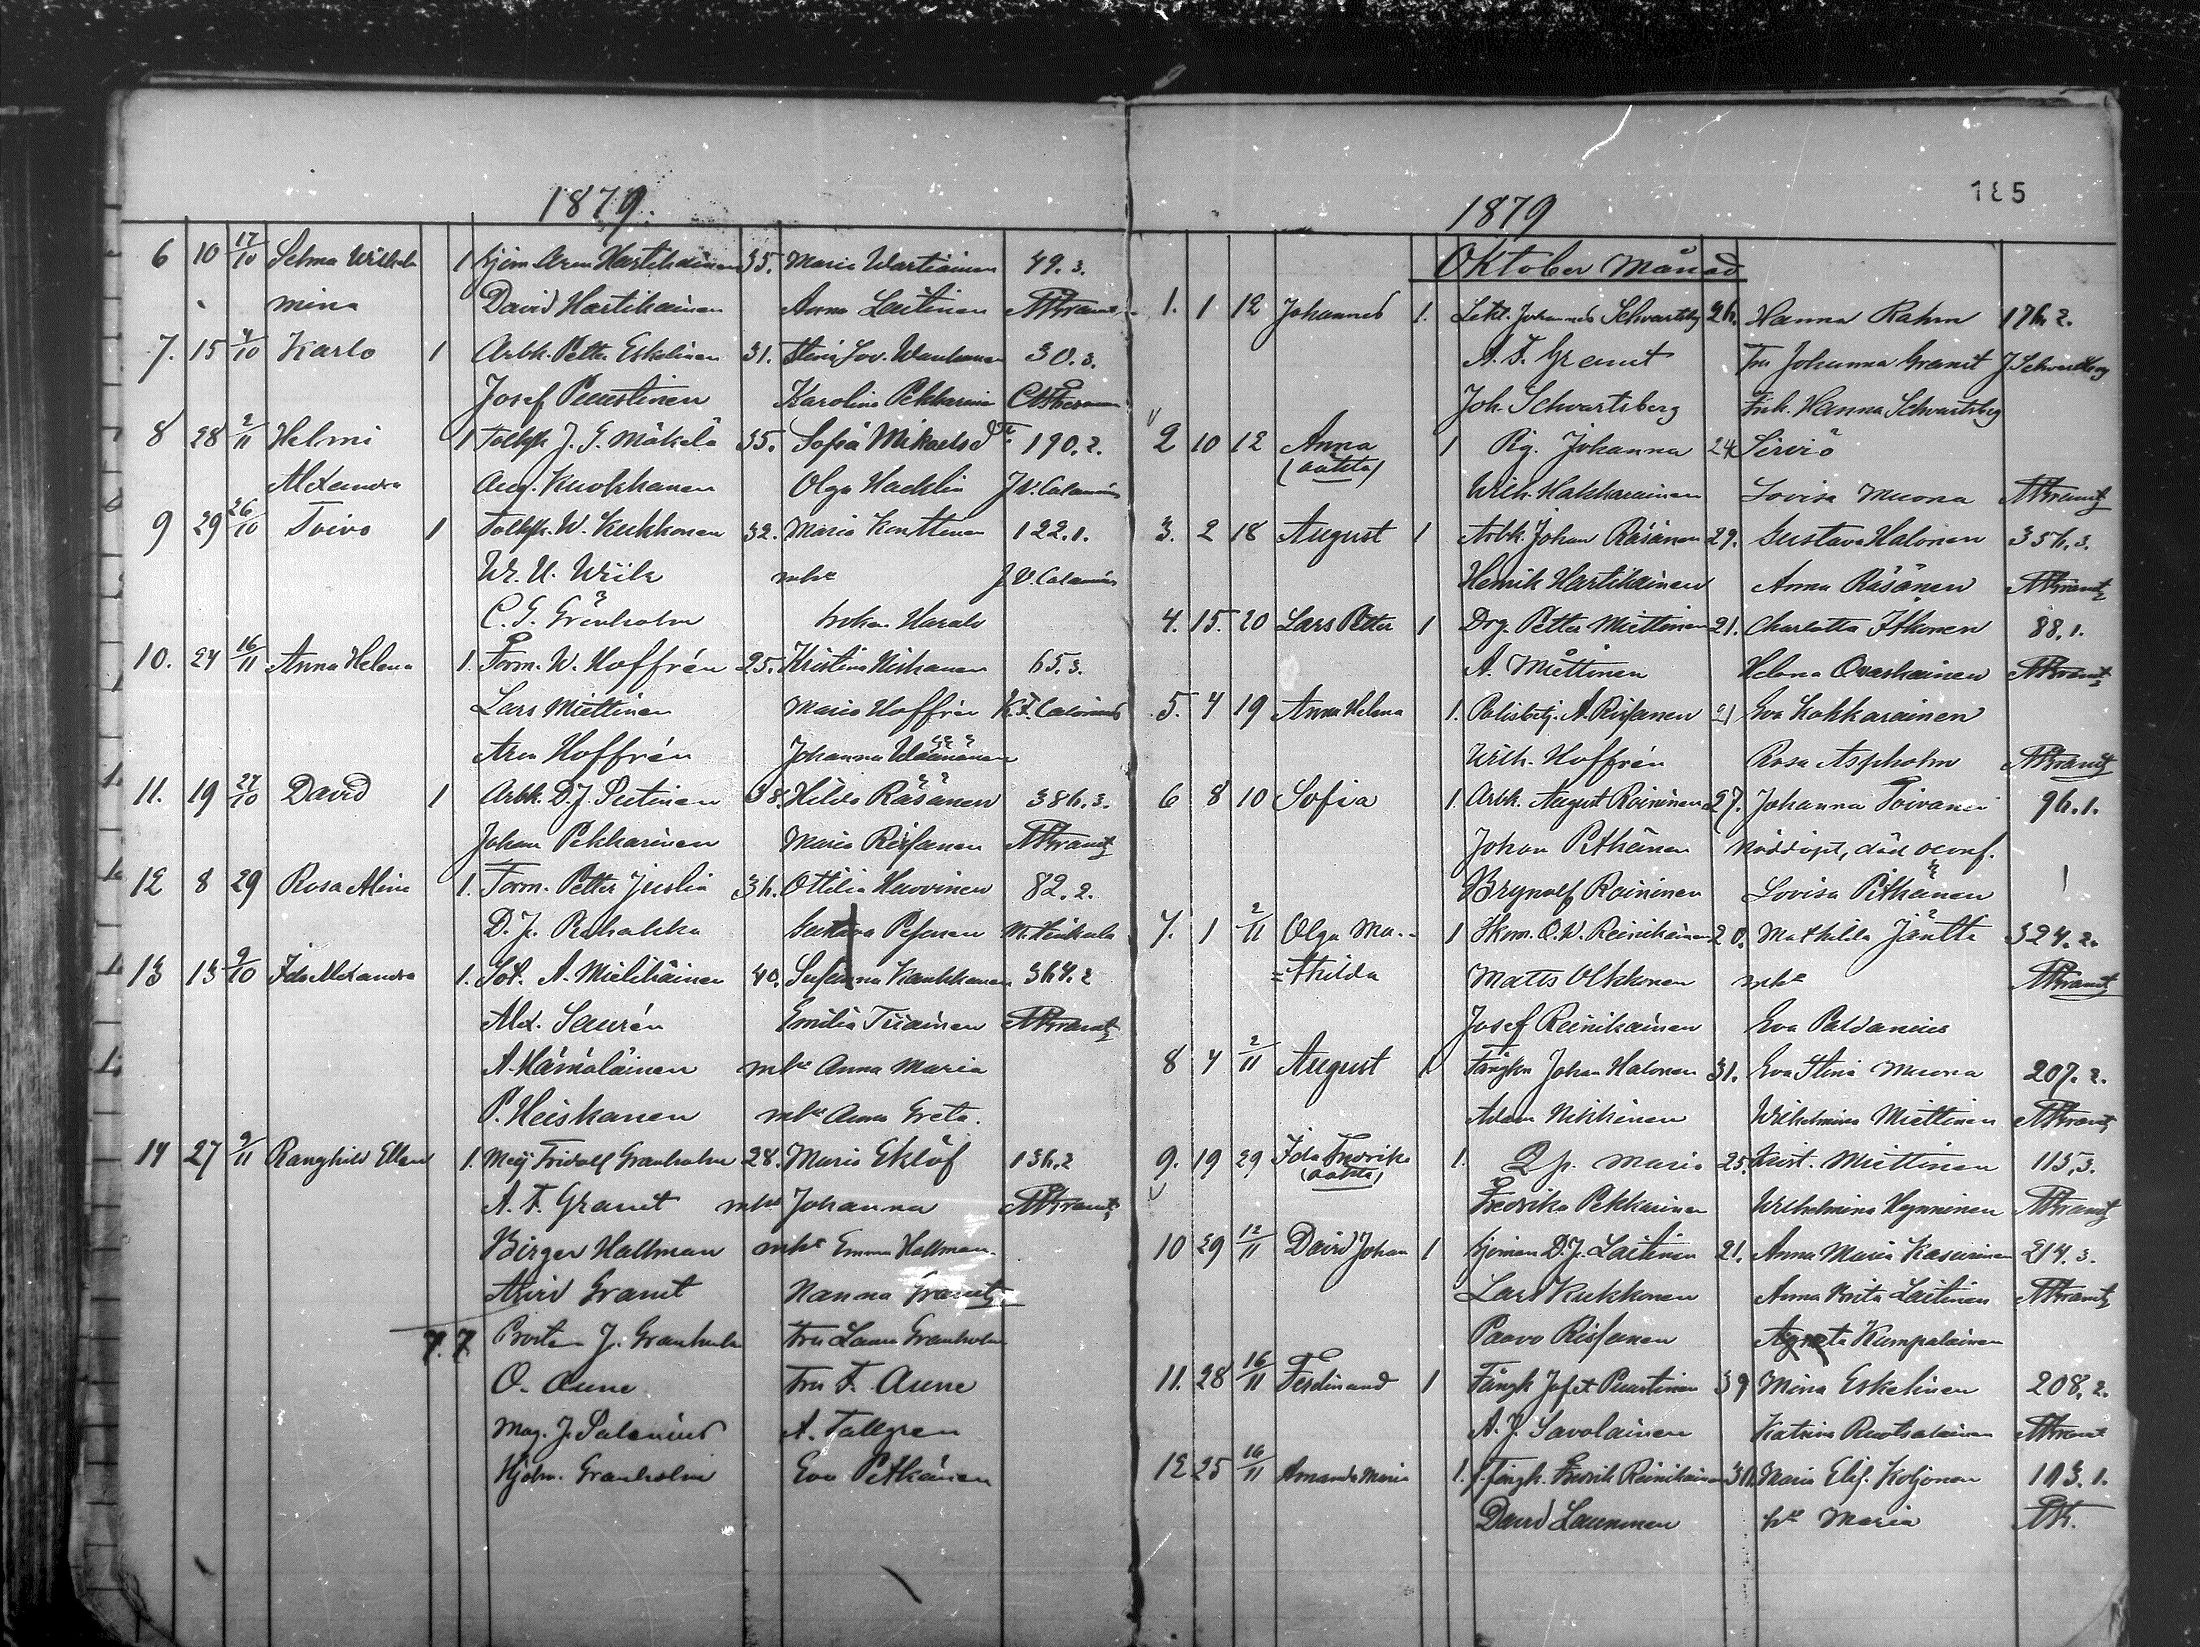 1879.
6 10 17/10 Selma Wilhel 1 Hartikainen 35. Maria Wartiainen 49. 3.
mina David Hartikainen Anna Laitinen
7. 15 4/10 Karlo 1 Arbk. Petter Eskelinen 31. 30. 3.
Josef Puustinen Karolina Pekkarinen
8 28 2/11 Helmi 1 J. G. Mäkelä 35. Sofia Mikaelsd 190. 2.
Alexandra Aug. Kuokkanen Olga Hacklin J. V. Calamnius
9 29 26/10 Toivo 1 W. Kukkonen 32. Maria Konttinen 122. 1.
W. Wiik mhu J. V. Calamnius
C. G. Grönholm
10. 24 16/11 Anna Helena 1. Form. W. Hoffrén 25. Kristina Niskanen 65. 3.
Lars Miettinen Maria Hoffrén
Aron Hoffrén Johanna Wäänänen
11. 19 27/10 David 1 Arbk. D. J. 38. Hilda Räsänen 386. 3.
Johan Pekkarinen Maria Rissanen
12 8 29 Rosa Alina 1. Form. Petter Juslin 36. Ottilia Huovinen 82. 2.
D. J. Gustava Pesonen
13 13 9/10 Ida Alexandra 1. A. Mielikäinen 40. Susanna Kaukkanen 364. 2
Alex. Saurén Emilia Tiainen
A. Hämäläinen mhu Anna Maria
P. Heiskanen mhu Anna Greta.
14 27 9/11 Ranghild Ellen 1. Fridolf Granholm 28. Maria Eklöf 136. 2
A. F. Granit mhu Johanna
Birger Hallman mhu Emma Hallman
Arvid Granit Nanna Granit
7. 7. J. Granholm Fru Laura Granholm
O. Aune Fru F. Aune
Mag. J. A. Tallgren
Hjalm. Granholm Eva Pitkänen
185
1879
Oktober Månad
1. 1 12 Johannes 1. Lekt. Johannes Schvartzberg 26. Hanna Rahm 176. 2.
A. F. Granit Fru Johanna Granit J. Schvartzberg
Joh. Schvartsberg Enk. Hanna Schvartsberg
2 10 12 Anna 1 Pig. Johanna 24 Sirviö
(oäkta)
Wilh. Kakkarainen Lovisa Muona
3. 2 18 August 1 Arbk. Johan Räsänen 29. Gustava Halonen 356. 3.
Henrik Hartikainen Anna Räsänen
4. 15. 20 Lars Petter 1 Drg. Petter Miettinen 21. Charlotta Itkonen 88. 1.
A. Miettinen Helena Ovaskainen
5. 4 19 Anna Helena 1. Polisbetj. A. Rissanen 21 Eva Kakkarainen
Wilh. Hoffrén Rosa Aspholm
6 8 10 Sofia 1. Arbk. August Roininen 27. Johanna Toivanen 96. 1.
Johan Pitkänen Nöddöpt, död oconf.
Brynolf Roininen Lovisa Pitkänen
7. 1 2/11 Olga Ma- 1 O. W. Reinikainen 20. Mathilda Jäntti 324. 2.
=thilda Matts Olkkonen mhu
Josef Reinikainen Eva Paldanius
8 4 2/11 August 1 Fångkn Johan Halonen 31. Eva Stina Muona 207. 2.
Adam Nikkinen Wilhelmina Miettinen
9. 19 29 Ida Fredrika 1. Q. p. Maria 25. Krist. Miettinen 115. 3.
(oäkta)
Fredrika Pekkarinen Wilhelmina Hynninen
10 29 12/11 David Johan 1 D. J. Laitinen 21. Anna Maria Kasurinen 214. 3.
Lars Kukkonen Anna Brita Laitinen
Paavo Rissanen Agneta Kumpulainen
11. 28 16/11 Ferdinand 1 Fångk Josef Puustinen 39 Mina Eskelinen 208. 2.
A. J. Savolainen Katrina Ruotsalainen
12 25 16/11 Amanda Maria 1. Fångk. Fredrik Reinikainen Maria Elis. Koljonen 113. 1.
David Launonen Maria